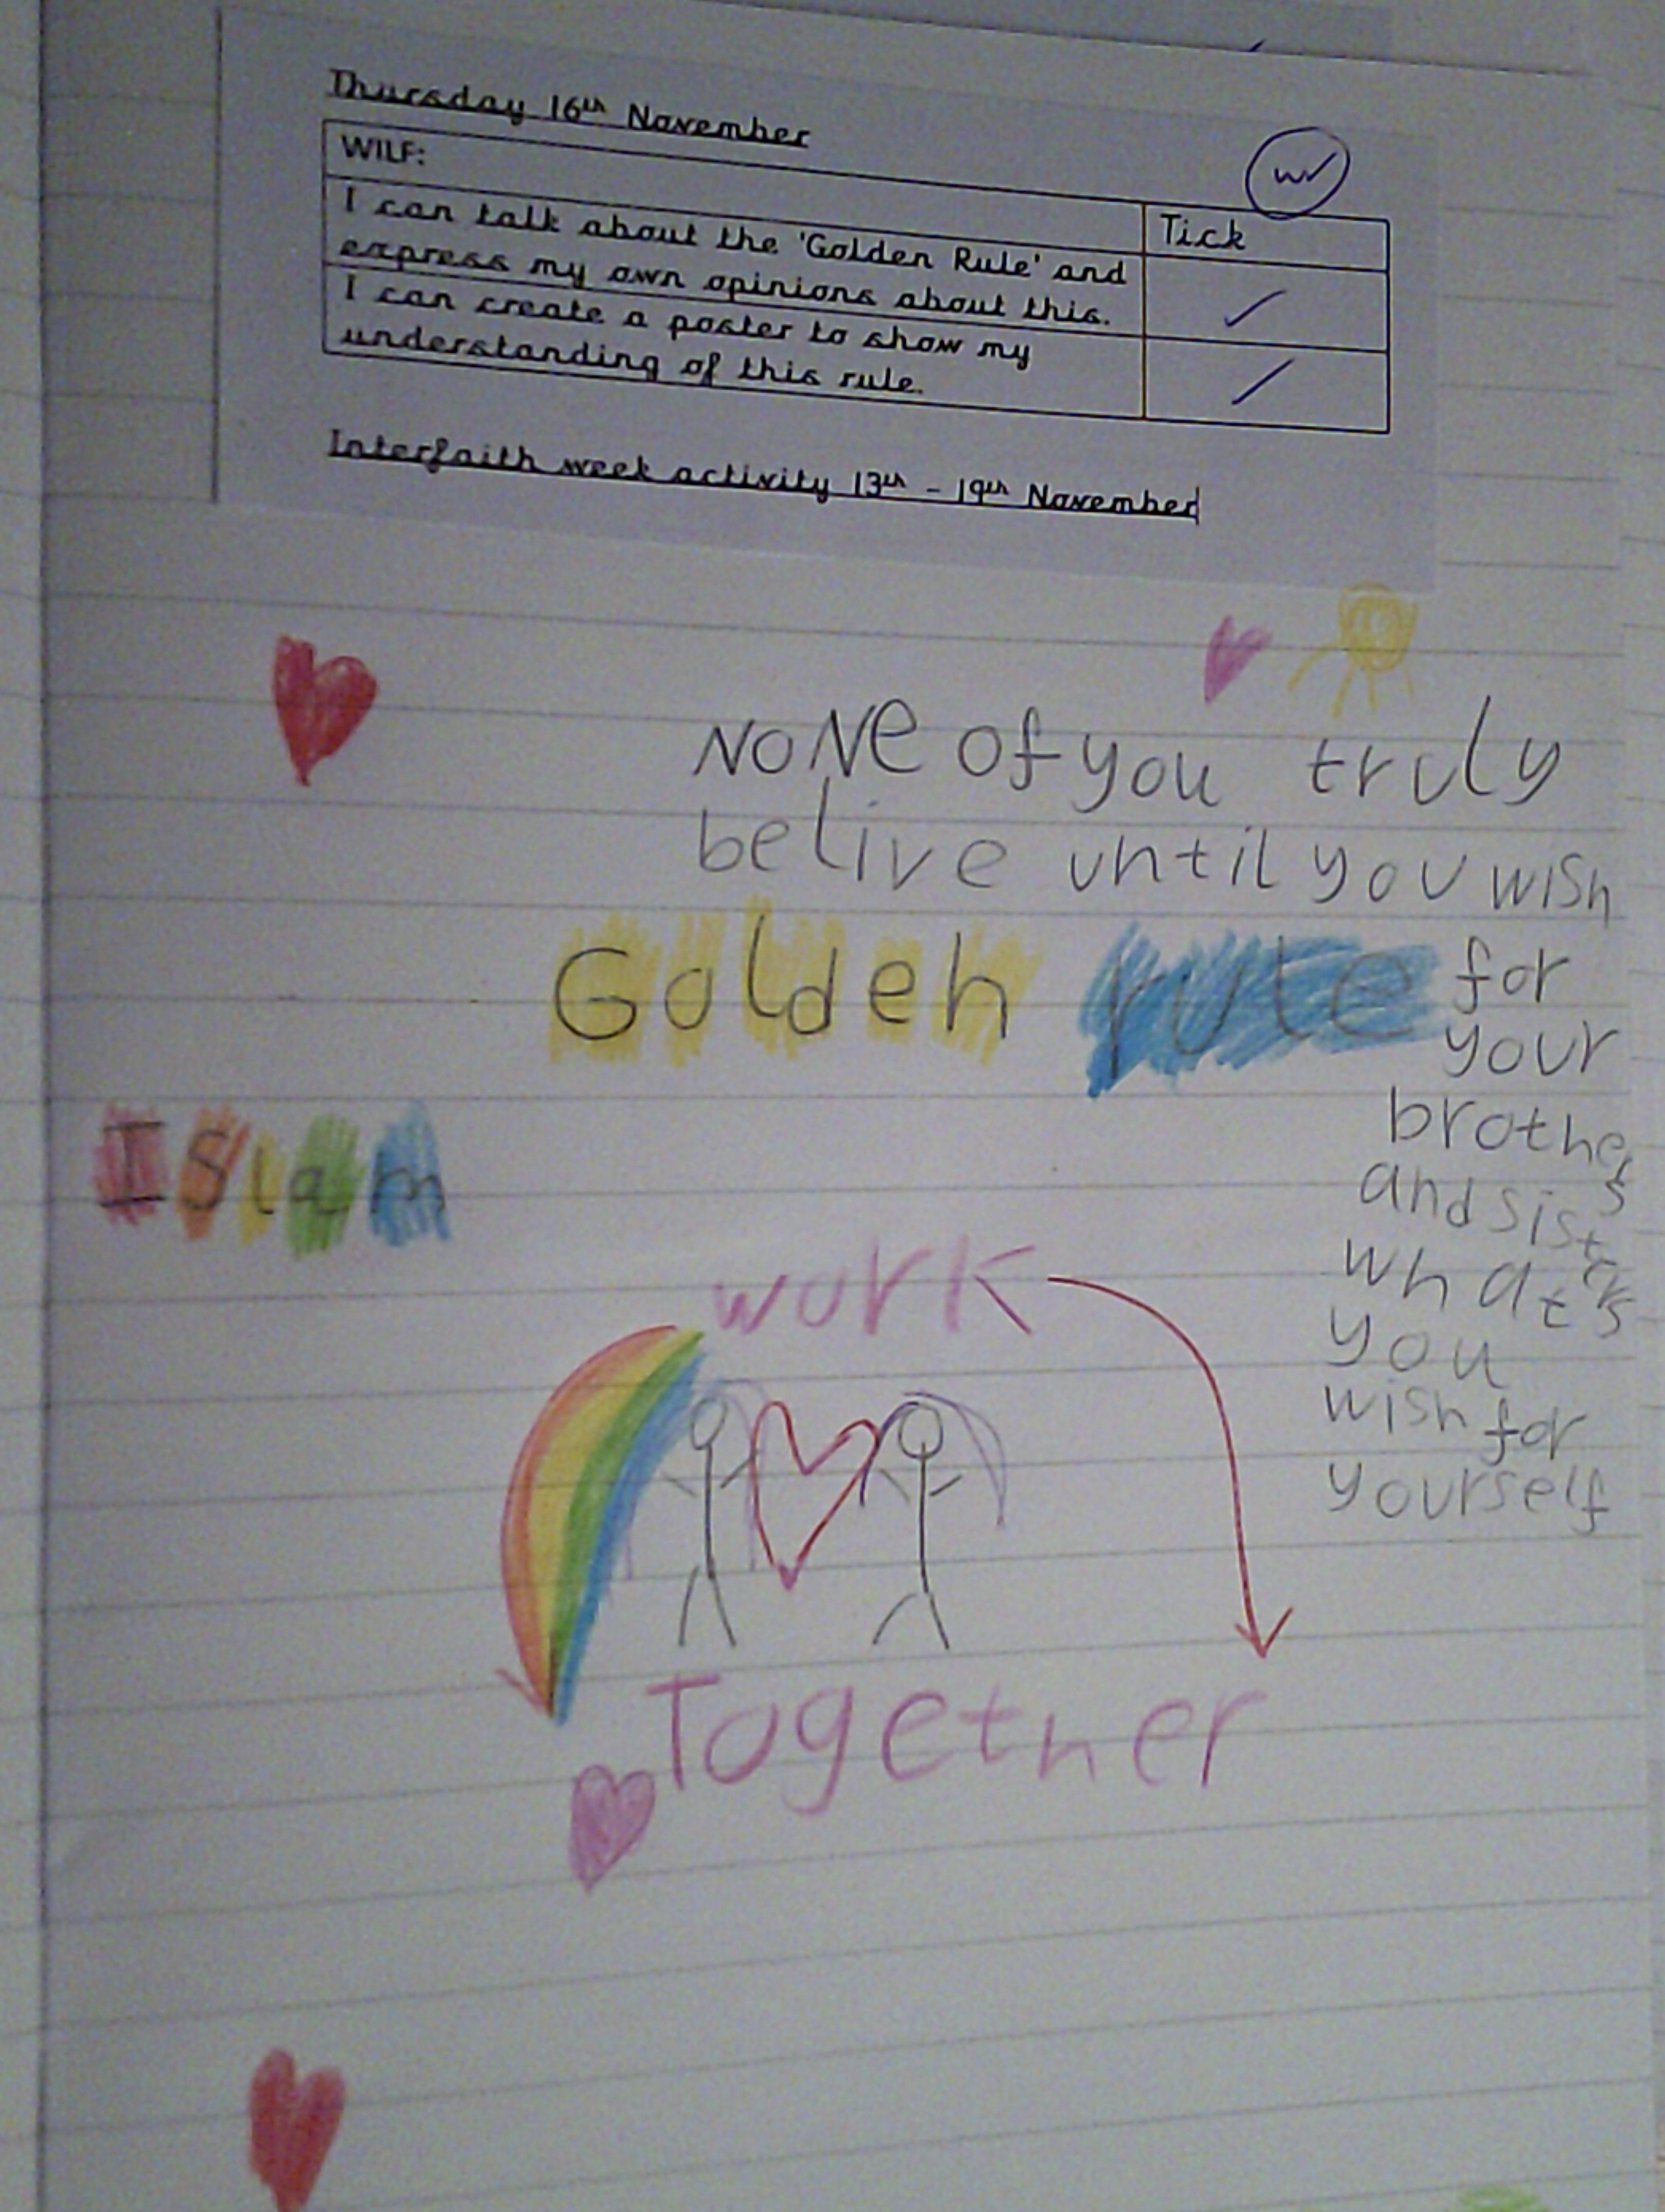 Thursday 16th November
WILF:
Tick
I can talk about the 'Golden Rule' and
express my own opinions about this.
I can create a poster to show my
understanding of this rule.
Interfaith week activity 13th - 19th November
NoNe of you truly
belive until you wish
for
your
brothers
and sisters
what
you
wish for
yourself
Golden rule
ISlam
work
Together